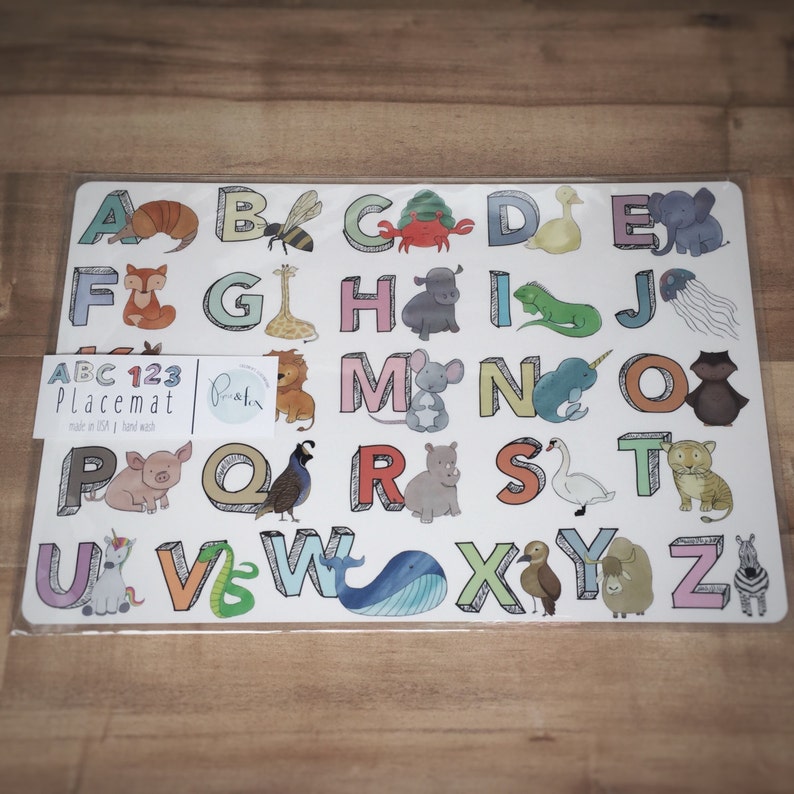 A B C D E
F G H I J
M N O
ABC 123
Placemat
made in USA | hand wash
& fox
P Q R S T
U V W X Y Z